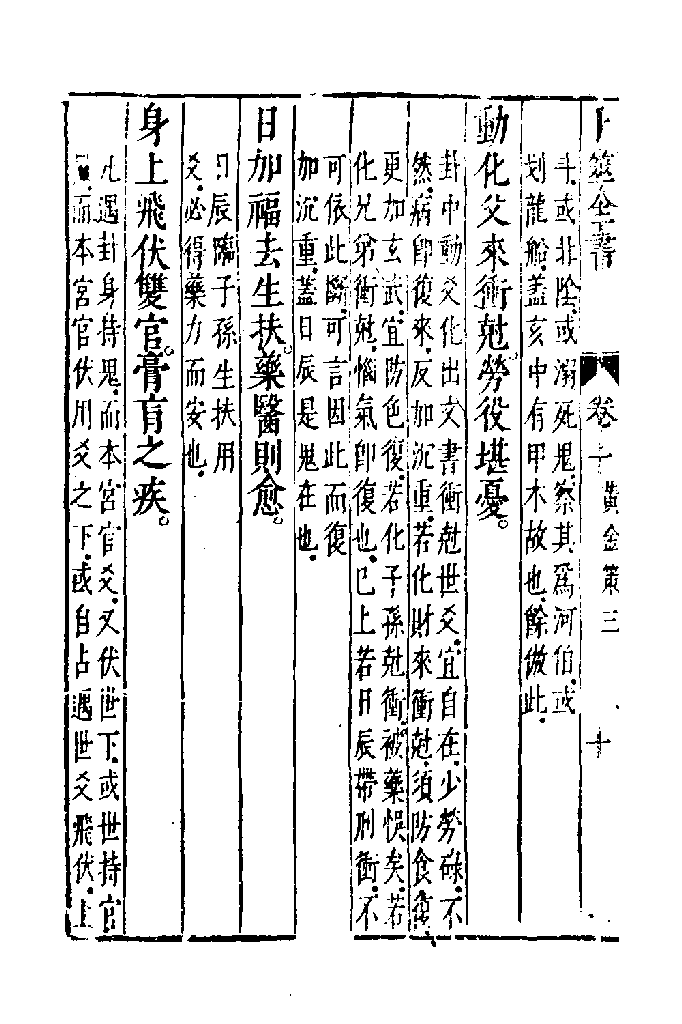 卜筮全書
卷十
黃金策三
十
斗.或北陰.或溺死鬼.祭其爲河伯.或
划龍船.蓋亥中有甲木故也.餘倣此.
動化父來衝尅勞役堪憂。
卦中動爻化出文書衝尅世爻.宜自在.少勞碌.不
然.病卽復來.反加沉重.若化財來衝尅.須防食復.
更加玄武.宜防色復.若化子孫尅衝.被藥悞矣.若
化兄弟衝尅.惱氣卽復也.已上若日辰帶刑衝.不
可依此斷.可言因此而復
加沉重.蓋日辰是鬼在也.
日加福去生扶.藥醫則愈。
日辰臨子孫生扶用
爻.必得藥力而安也.
身上飛伏雙官.膏肓之疾。
凡遇卦身持鬼.而本宮官爻.又伏世下.或世持官
而本宮官伏用爻之下.或自占遇世爻飛伏.上